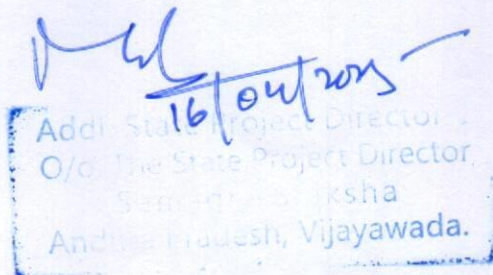 16/04/2025
Addl. State Project Director
O/o The State Project Director,
Samagra Shiksha
Andhra Pradesh, Vijayawada.